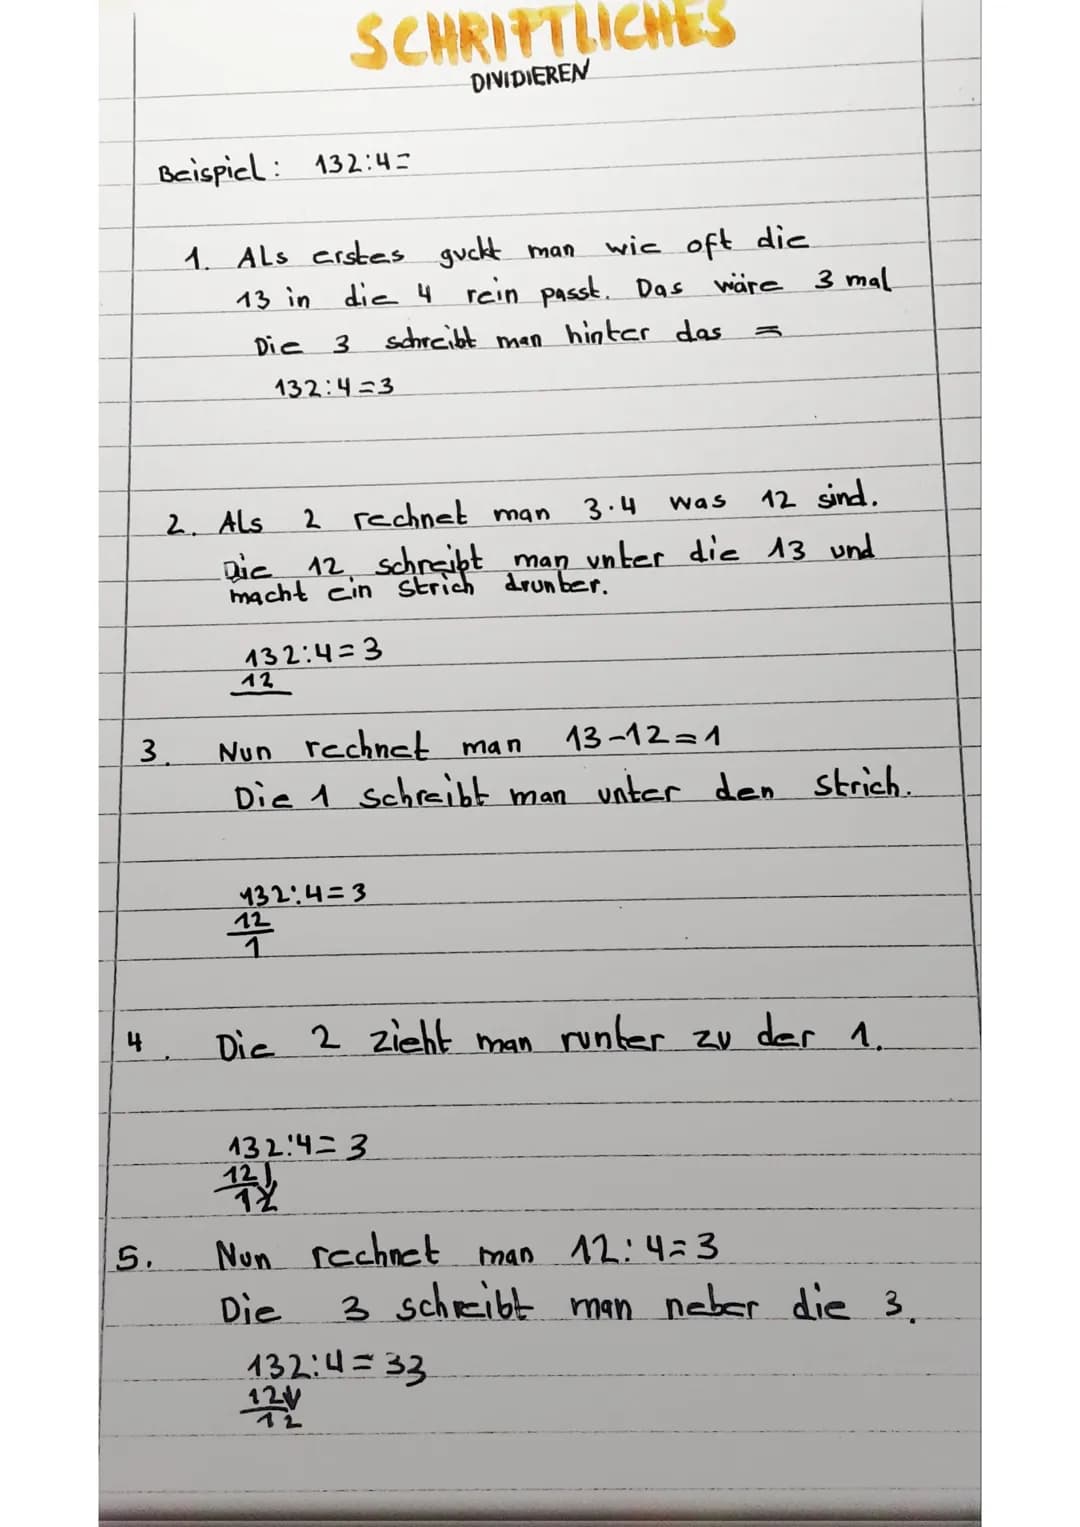 SCHRIFTLICHES
DIVIDIEREN
Beispiel: 132:4=
1. Als erstes guckt man wie oft die
13 in die 4 rein passt. Das wäre 3 mal
Die 3 schreibt man hinter das =
132:4=3
2. Als 2 rechnet man 3·4 was 12 sind.
Die 12 schreibt man unter die 13 und
macht ein Strich drunter.
132:4=3
12
3. Nun rechnet man 13-12=1
Die 1 schreibt man unter den Strich.
132:4=3
12
1
4. Die 2 zieht man runter zu der 1.
132:4=3
12↓
12
5. Nun rechnet man 12:4=3
Die 3 schreibt man neber die 3.
132:4=33
12↓
12